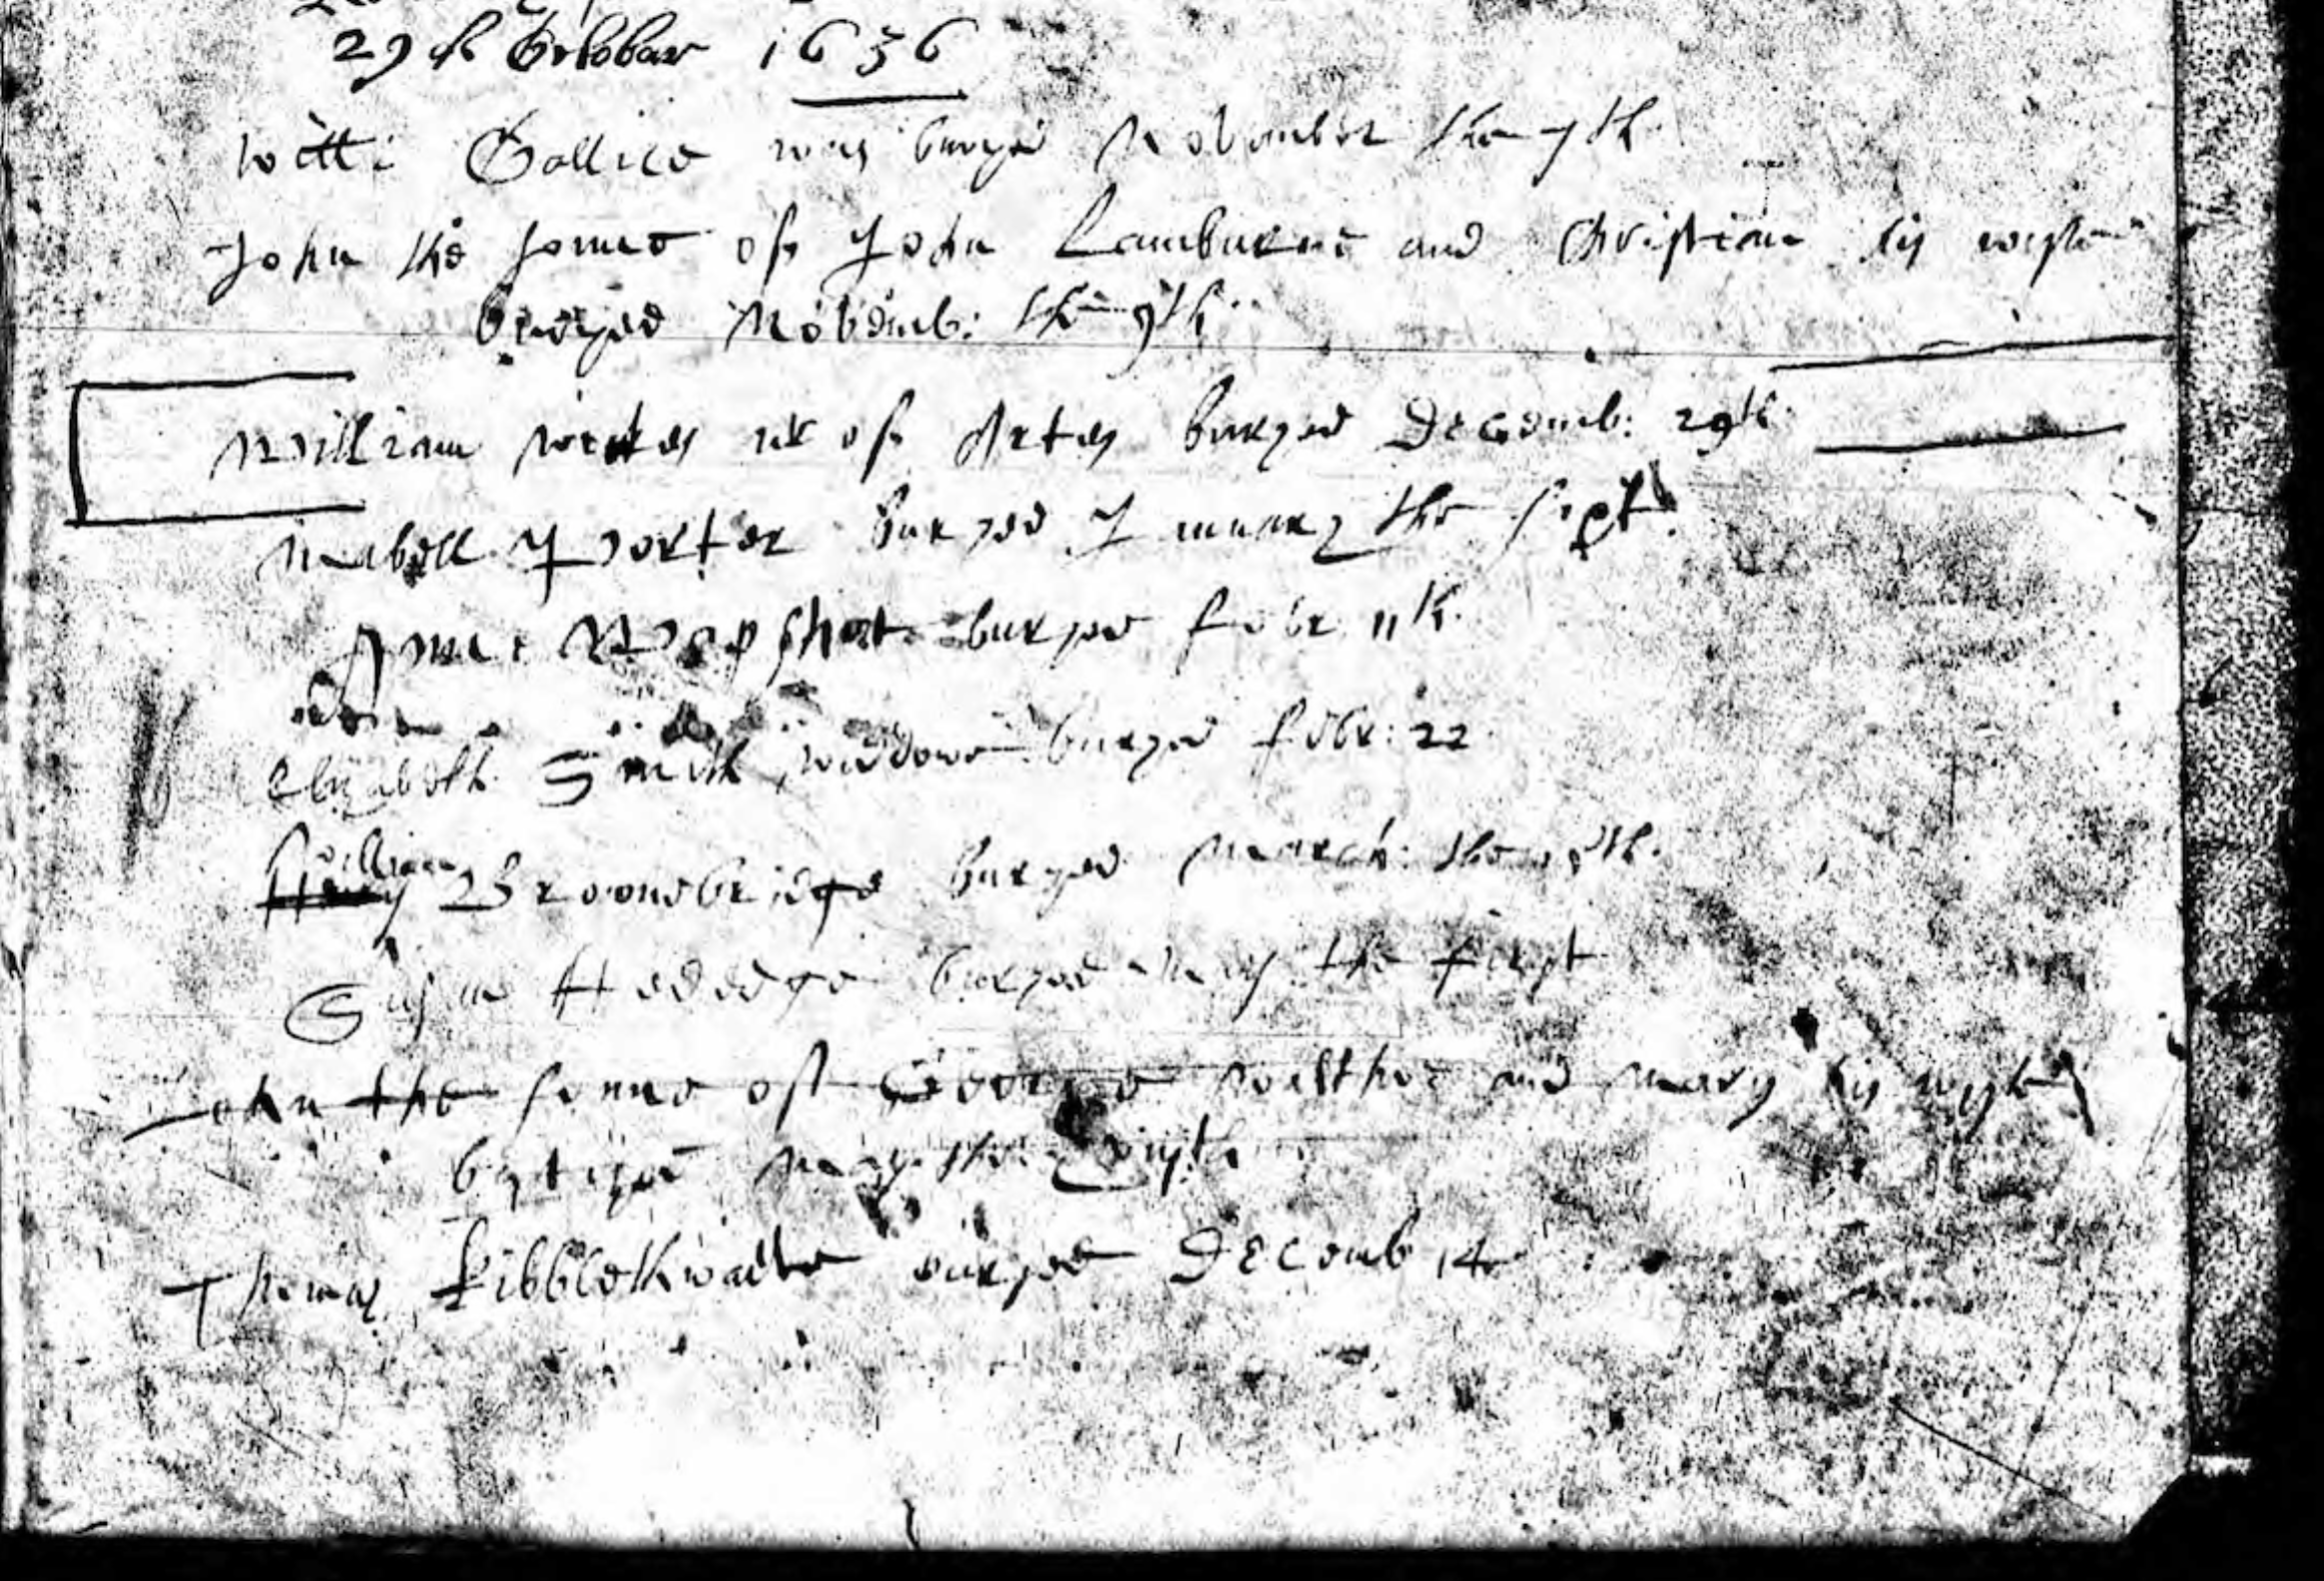 29th October 1636
Will: Gollice was buryed November the 7th
John the sonne of John Lamburne and Christian his wife
Buryed Novemb: the 9th
William Weekes mr of Artes buryed Decemb: 29th
Mabell Porter buryed January the sixt
Anne Wapshot buryed febr 11th.
Elizabeth Smith widdowe buryed febr: 22
William
Brownebridge buryed March: the
Susan Heddege buryed May the first
John the sonne of George and Mary his wyfe
baptized May the
Thomas Kibblethwaite buryed Decemb 14